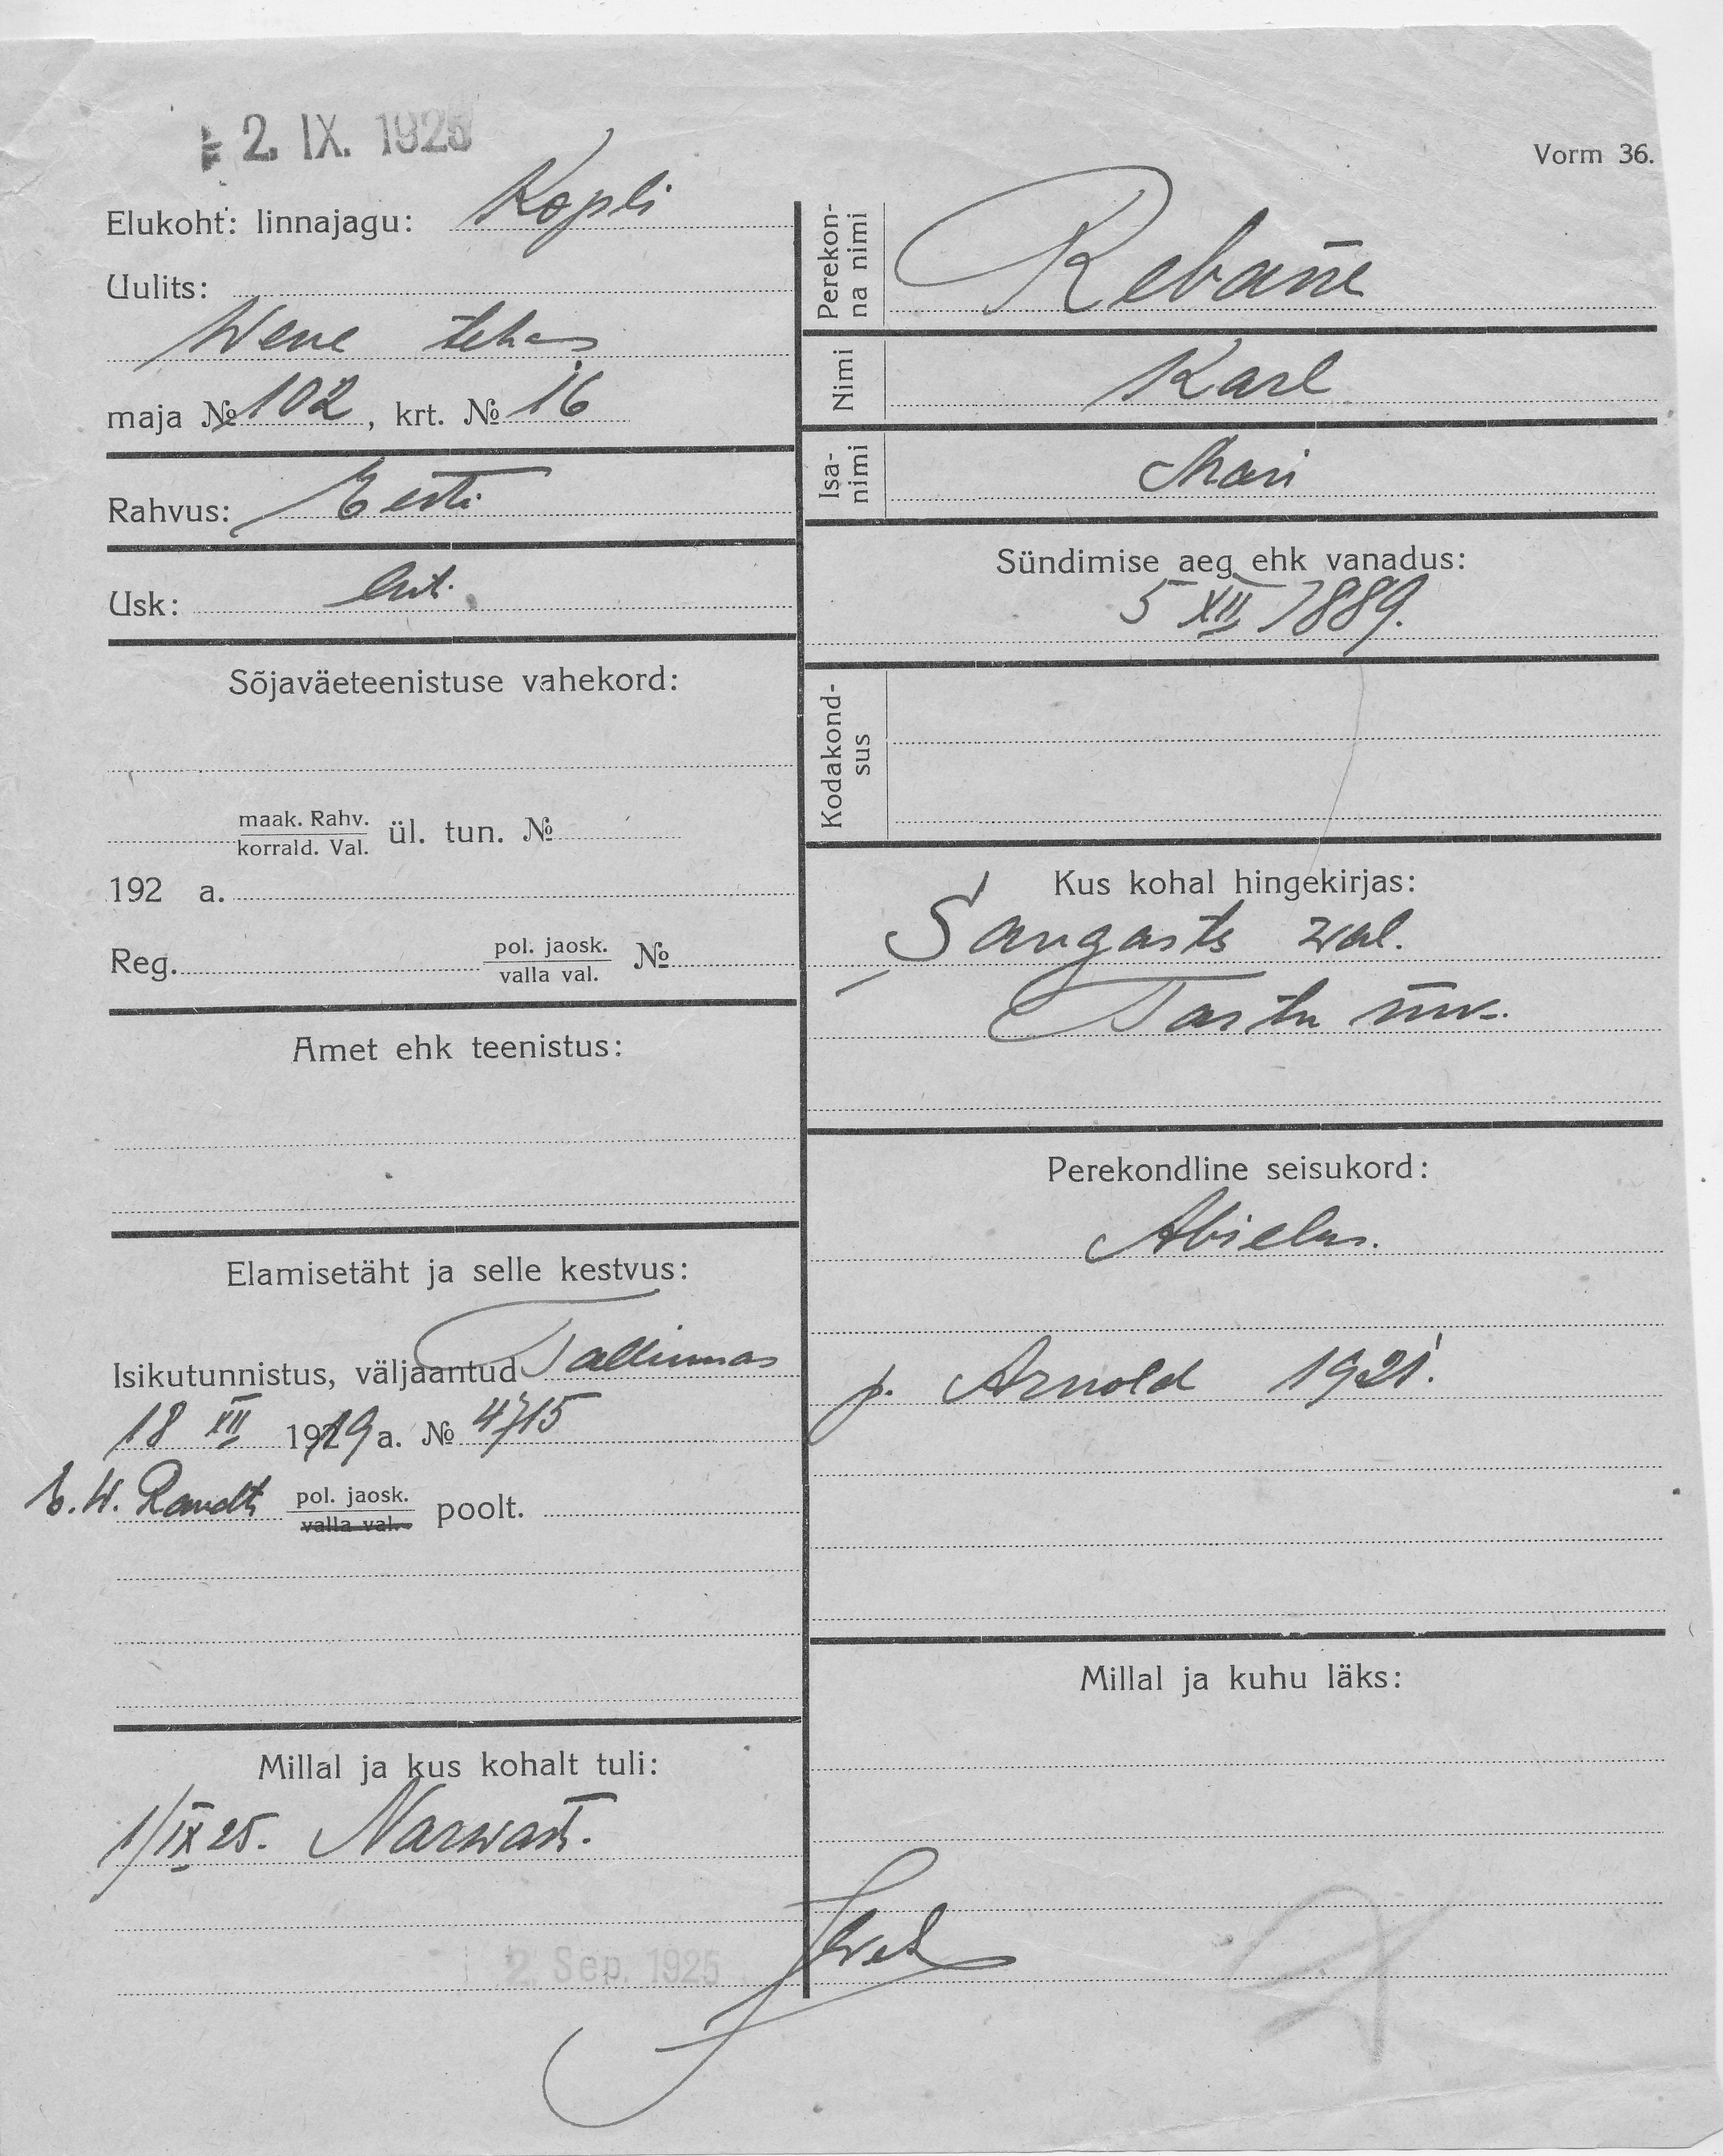 2. IX. 1925
Vorm 36.
Elukoht: linnajagu: Kopli
Uulits:
Wene tehas
maja № 102, krt. № 16
Rahvus: Eesti
Usk: Lut.
Sõjaväeteenistuse vahekord:
maak. Rahv.
korrald. Val. ül. tun. №
192 a.
Reg. pol. jaosk. №
valla val.
Amet ehk teenistus:
Elamisetäht ja selle kestvus:
Isikutunnistus, väljaantud Tallinnas
18 XII 1919 a. № 4715
pol. jaosk. poolt.
valla val.
Millal ja kus kohalt tuli:
1/IX 25. Narwast.
2. Sep. 1925
Perekon-
na nimi
Rebane
Nimi Karl
Isa-
nimi
Mari
Sündimise aeg ehk vanadus:
5 XII 1889.
Kodakond-
sus
Kus kohal hingekirjas:
Sangaste wal.
Tartu
Perekondline seisukord:
Abielus.
p. Arnold 1921.
Millal ja kuhu läks: